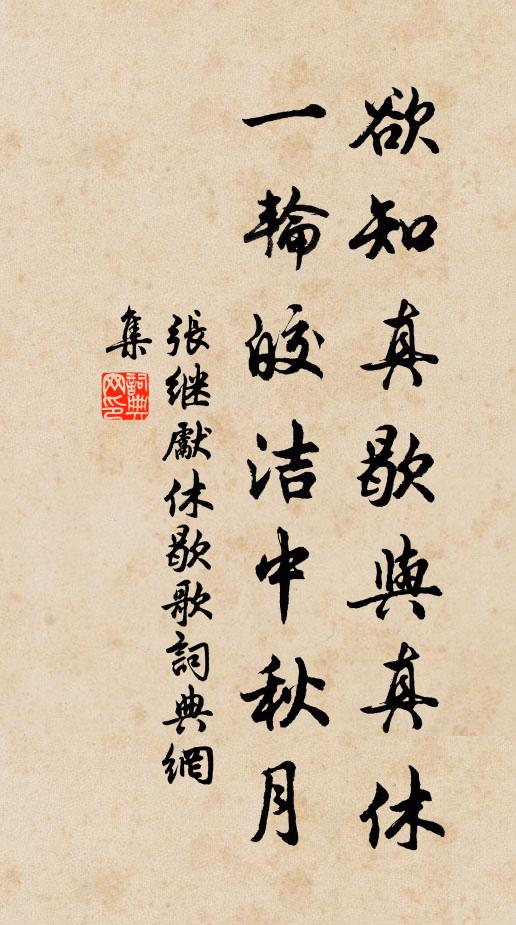 欲知真歇與真休
一輪皎洁中秋月
張继獻休歇歌詞典網
集
詞典
网印